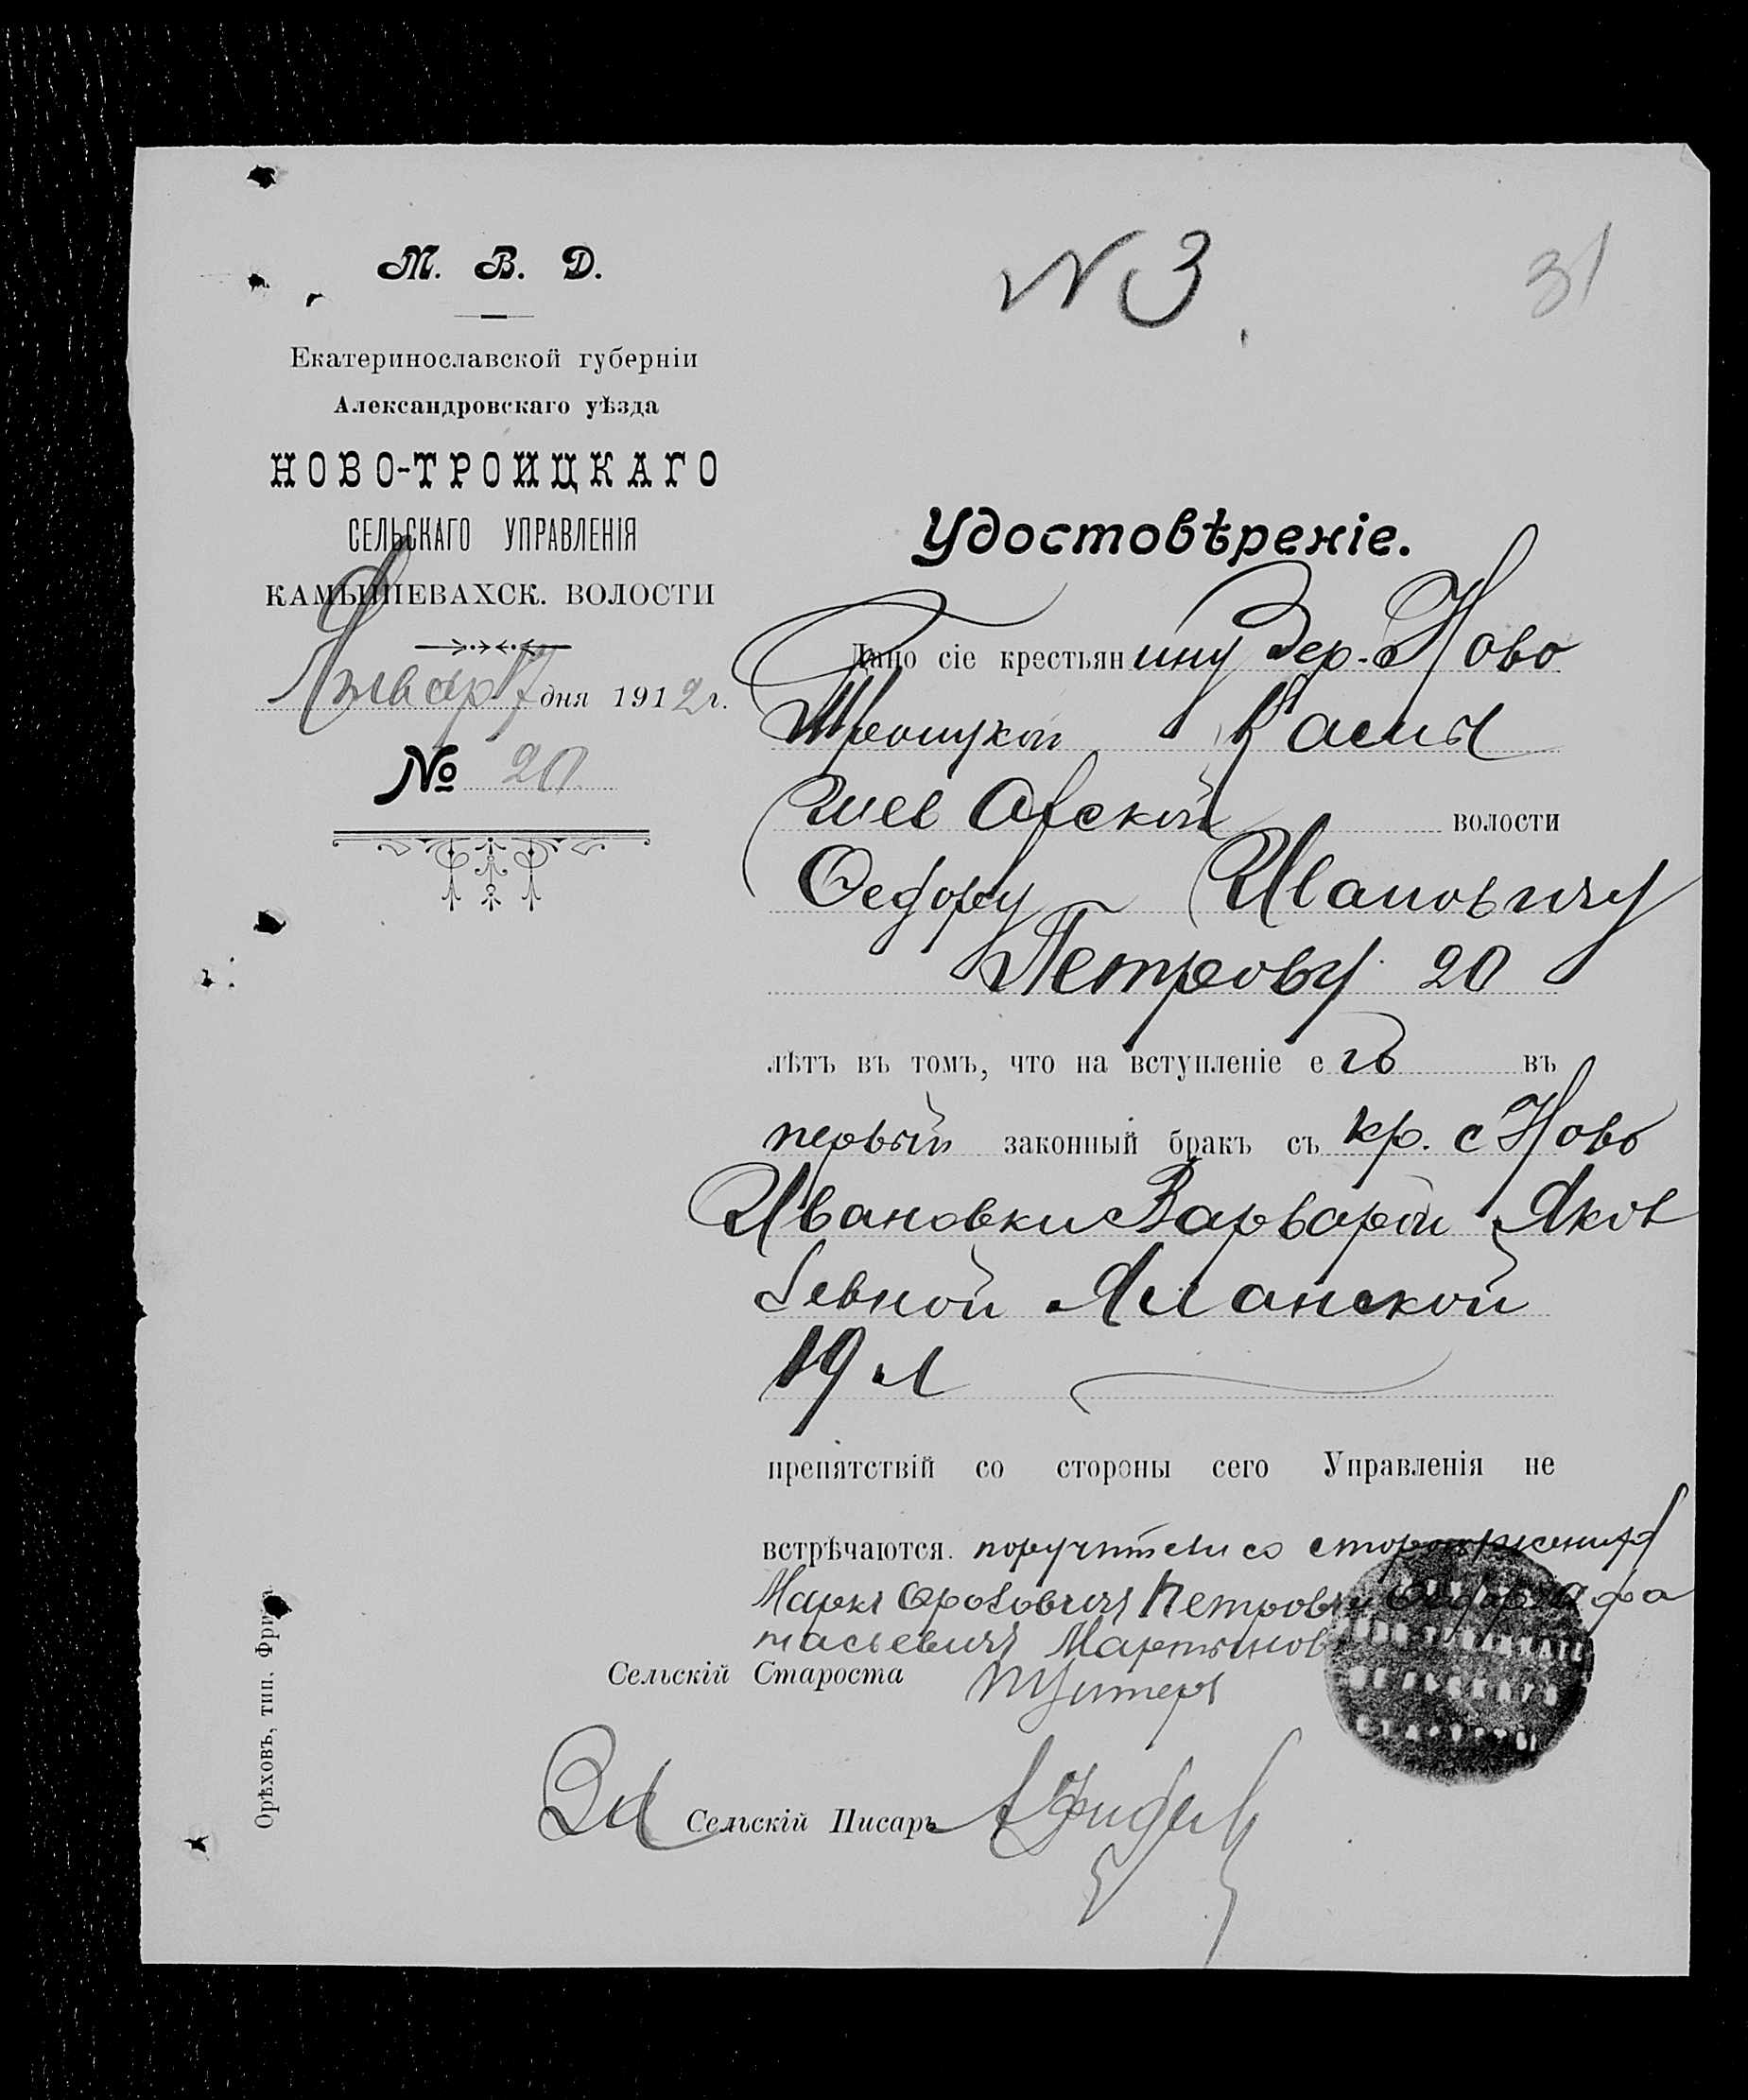 № 3
31
М. В. Д.
Екатеринославской губерніи
Александровскаго уѣзда
НОВО-ТРОИЦКАГО
СЕЛЬСКАГО УПРАВЛЕНІЯ
КАМЫШЕВАХСК. ВОЛОСТИ
Январ 17 дня 1912 г.
№ 20
Удостовѣреніе.
Дано сіе крестьянину дер. Ново
Троицкой Камы
шевахской волости
Федору Ивановичу
Петрову 20
лѣтъ въ томъ, что на вступленіе его въ
первый законный бракъ съ кр. с Ново
Ивановки Варварой Яков
левной Яланской
19 л
препятствій со стороны сего Управленія не
встрѣчаются. поручители со стороны жениха
Марк Фролович Петров и Федор Афа
насьевич Мартынов
Сельскій Староста
НОВО-ТРОИЦКАГО
СЕЛЬСКАГО
СТАРОСТЫ
За Сельскій Писарь
Орѣховъ, тип. Фрид.